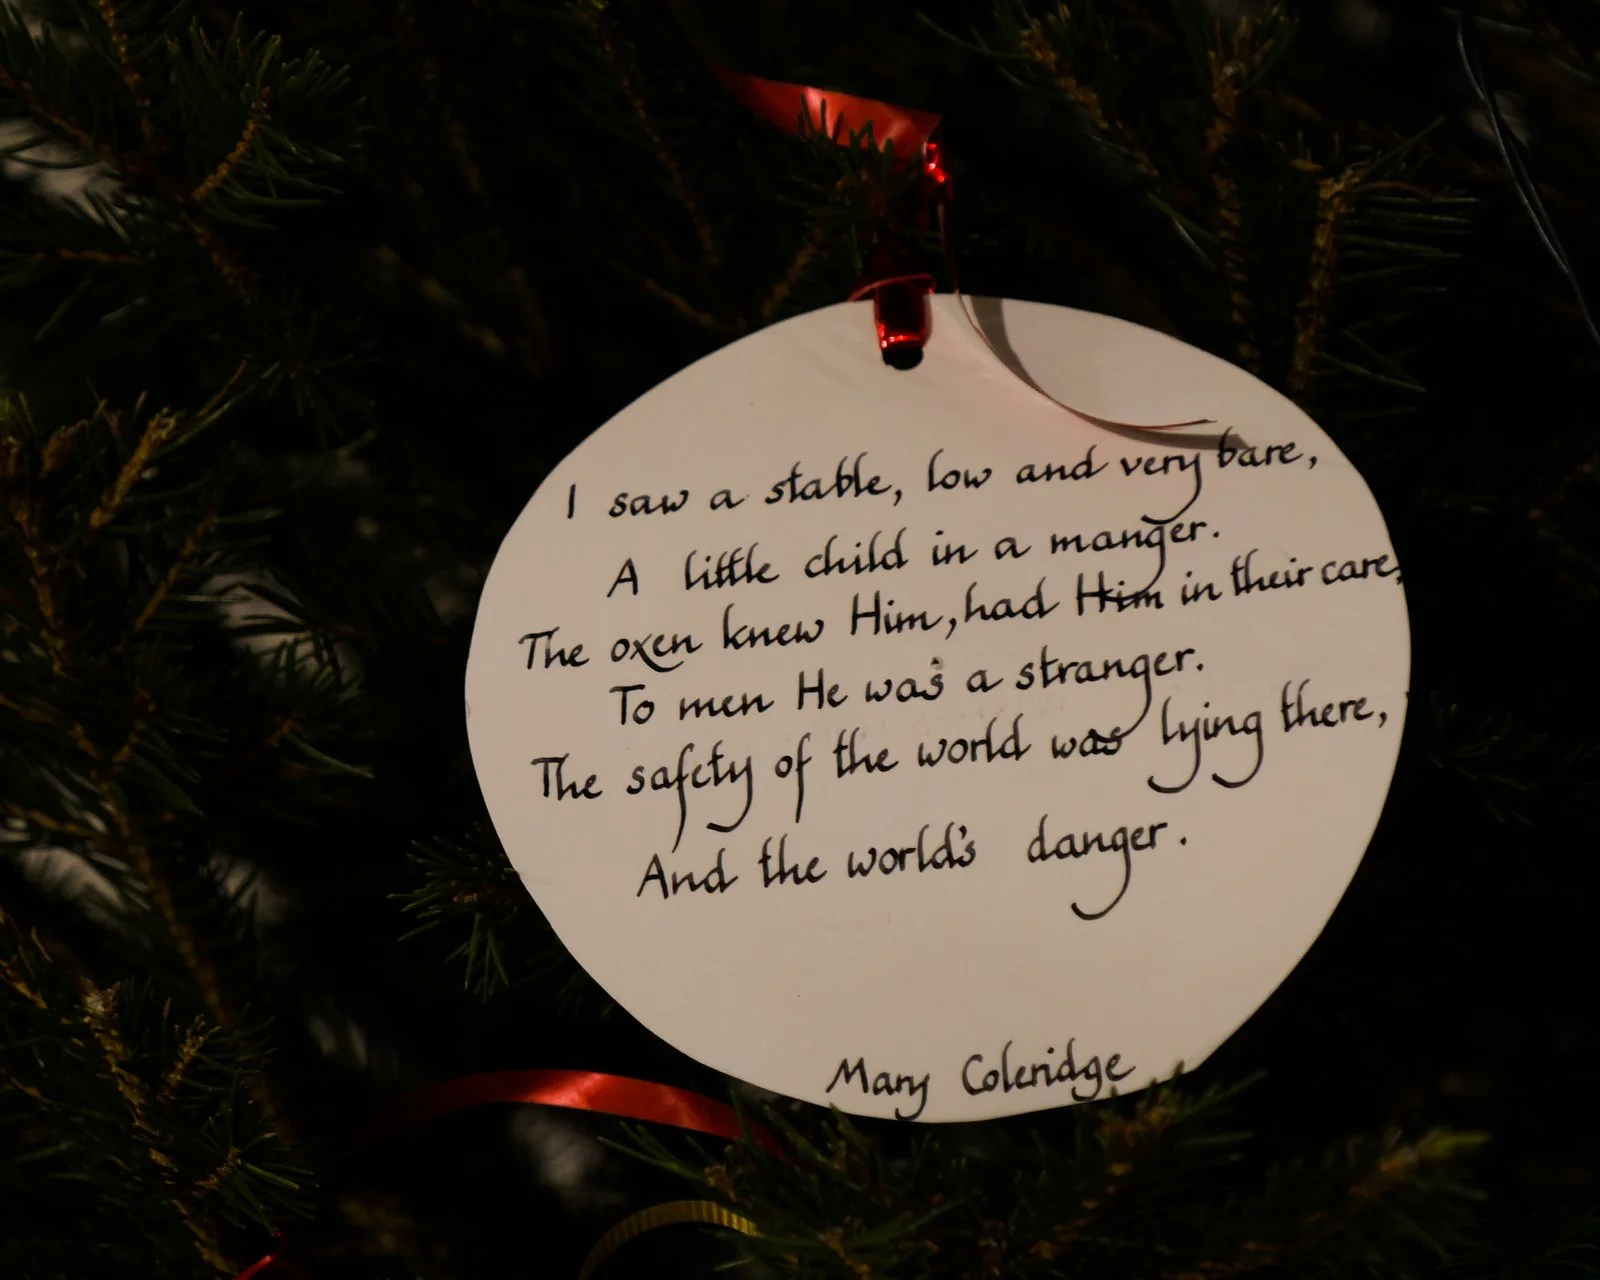 I saw a stable, low and very bare,
A little child in a manger.
The oxen knew Him, had Him in their care,
To men He was a stranger.
The safety of the world was lying there,
And the world's danger.
Mary Coleridge